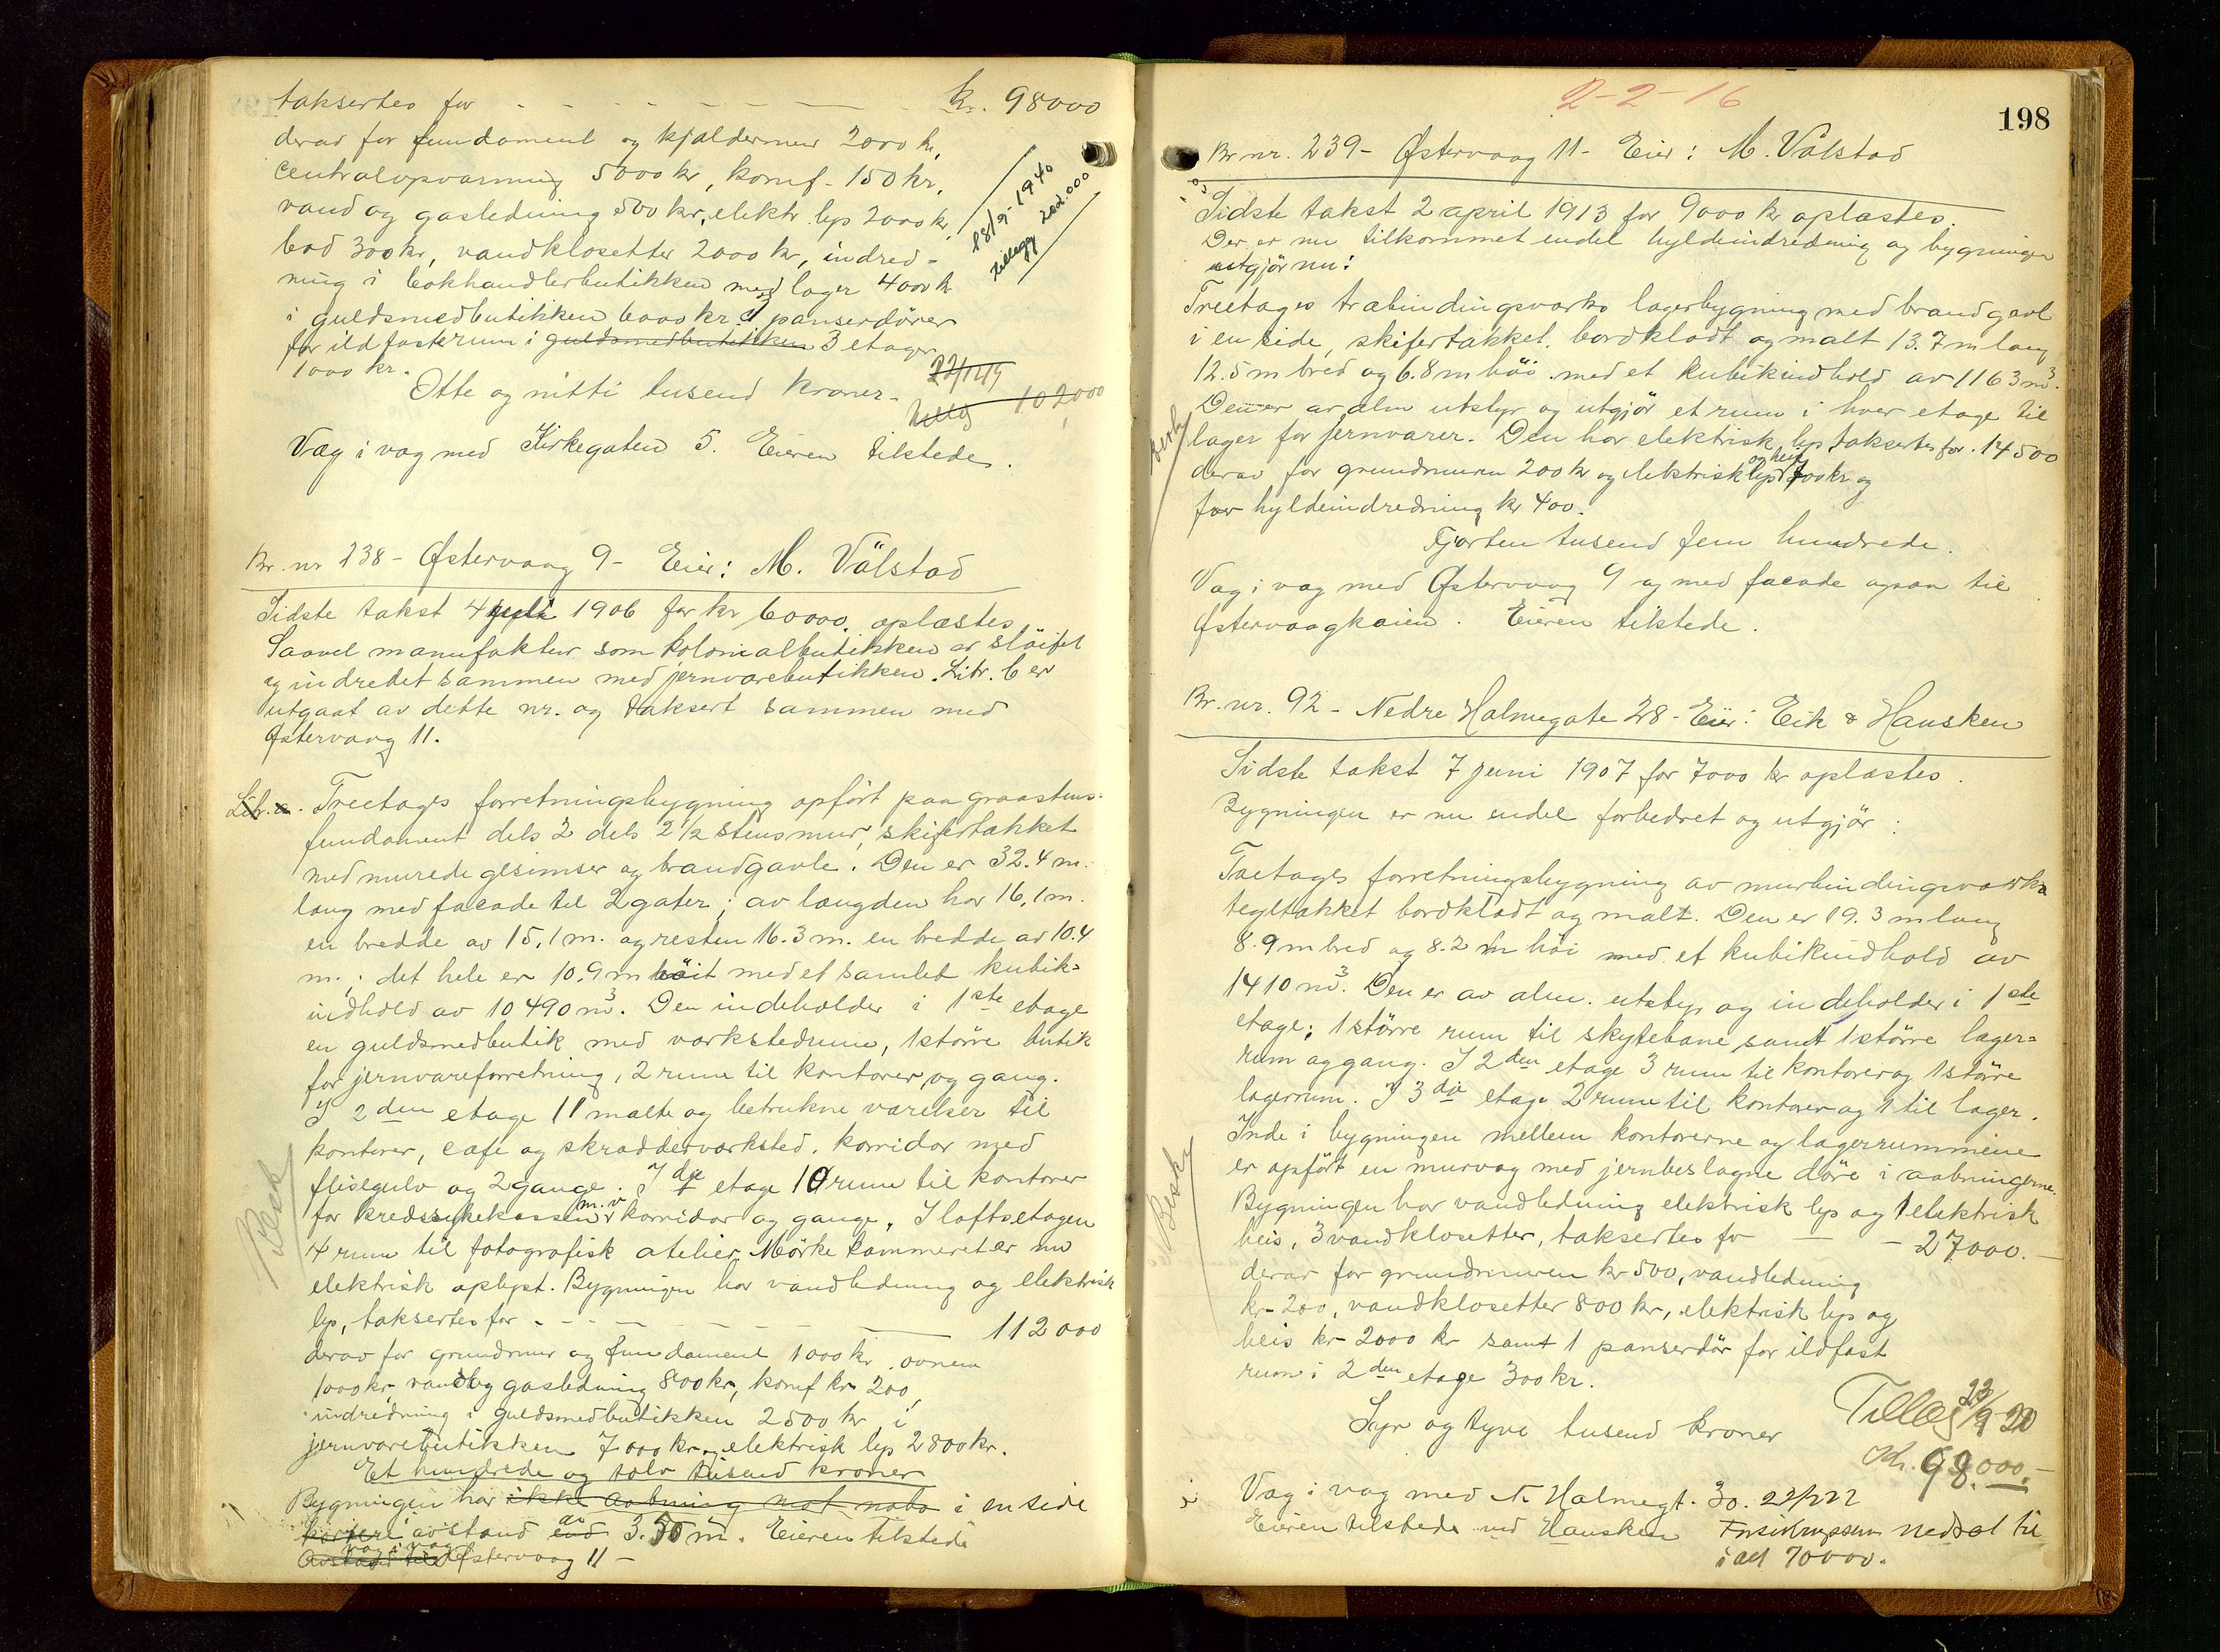 taksertes for - - - - - - - kr. 98000
derav for fundament og kjeldermur 2000 kr,
centralopvarming 5000 kr, komf. 150 kr,
vand og gasledning 500 kr, elektr. lys 2000 kr,
bad 300 kr, vandklosetter 2000 kr, indred-
ning i bokhandlerbutikken med lager 4000 kr
i guldsmedbutikken 6000 kr. panserdörer
for ildfasterum i guldsmedbutikken 3 etager
1000 kr.
18/9-1940
tillegg 202.000
Otte og nitti tusend kroner.
102000
Væg i væg med Kirkegaten 5. Eieren tilstede.
Br. nr 238 - Østervaag 9 - Eier: M. Vålstad
Sidste takst 4 juli 1906 for kr 60000. oplæstes
Saavel manufaktur som kolonialbutikken er slöifet
og indredet sammen med jernvarebutikken. Litr. b er
utgaat av dette nr. og taksert sammen med
Østervaag 11.
Litr. a. Treetages forretningsbygning opfört paa graastens-
fundament dels 2 dels 2 1/2 stensmur, skifertækket
med murede gesimser og brandgavle. Den er 32.4 m.
lang med facade til 2 gater; av længden har 16,1 m.
en bredde av 15,1 m. og resten 16.3 m. en bredde av 10.4
m.; det hele er 10.9 m höit med et samlet kubik-
indhold av 10490 m³. Den indeholder i 1ste etage
en guldsmedbutik med verkstedrum, 1 större butik
for jernvareforretning, 2 rum til kontorer og gang.
I 2den etage 11 malte og betrukne værelser til
kontorer, cafe og skrædderverksted, korridor med
flisegulv og 2 gange. I 3die etage 10 rum til kontorer
for kredssykekassen m.v. korridor og gange. I loftsetagen
4 rum til fotografisk atelier. Mörkekammeret er nu
elektrisk oplyst. Bygningen har vandledning og elektrisk
lys, taksertes for - - - - - 112000
derav for grundmur og fundament 1000 kr. ovnene
1000 kr, vand og gasledning 800 kr, komf kr 200,
indredning i guldsmedbutikken 2500 kr, i
jernvarebutikken 7000 kr og elektrisk lys 2800 kr.
Et hundrede og tolv tusend kroner
Bygningen har ikke aabning mot nabo i en side
kortere avstand end av 3.50 m. Eieren tilstede
Avstand til væg i væg Østervaag 11 -
Besk
2-2-16
198
Br nr. 239 - Østervaag 11 - Eier: M. Vålstad
Sidste takst 2 april 1913 for 9000 kr oplæstes.
Der er nu tilkommet endel hyldeindredning og bygningen
utgjör nu:
Treetages træbindingsverks lagerbygning med brandgavl
i en side, skifertækket, bordklædt og malt 13.7 m lang
12.5 m bred og 6.8 m höi med et kubikindhold av 1163 m³.
Den er av alm utstyr og utgjör et rum i hver etage til
lager for jernvarer. Den har elektrisk lys, taksertes for. 14500
derav for grundmuren 200 kr og elektrisk lys og heis 700 kr og
for hyldeindredning kr 400.
Fjorten tusend fem hundrede.
Væg i væg med Østervaag 9 og med facade ogsaa til
Østervaagkaien. Eieren tilstede.
Br. nr. 92 - Nedre Holmegate 28 - Eier: Eik & Hausken
Sidste takst 7 juni 1907 for 7000 kr oplæstes.
Bygningen er nu endel forbedret og utgjör:
Toetages forretningsbygning av murbindingsverk
tegltækket bordklædt og malt. Den er 19.3 m lang
8.9 m bred og 8.2 m höi med et kubikindhold av
1410 m³. Den er av alm. utstyr og indeholder i 1ste
etage: 1 större rum til skytebane samt 1 större lager-
rum og gang. I 2den etage 3 rum til kontorer og 1 större
lagerrum. I 3die etage 2 rum til kontorer og 1 til lager.
Inde i bygningen mellem kontorerne og lagerrummene
er opfört en murvæg med jernbeslagne döre i aabningerne.
Bygningen har vandledning elektrisk lys og 1 elektrisk
heis, 3 vandklosetter, taksertes for - - 27000.-
derav for grundmuren kr 500, vandledning
kr 200, vandklosetter 800 kr, elektrisk lys og
heis kr 2000 kr samt 1 panserdör for ildfast
rum i 2den etage 300 kr.
Syv og tyve tusend kroner
Tillæg 23/9 20
Kr. 98.000.-
Væg i væg med N. Holmegt. 30. 22/222
Eieren tilstede ved Hausken Forsikringssum nedsat til
i alt 70000.
Besk